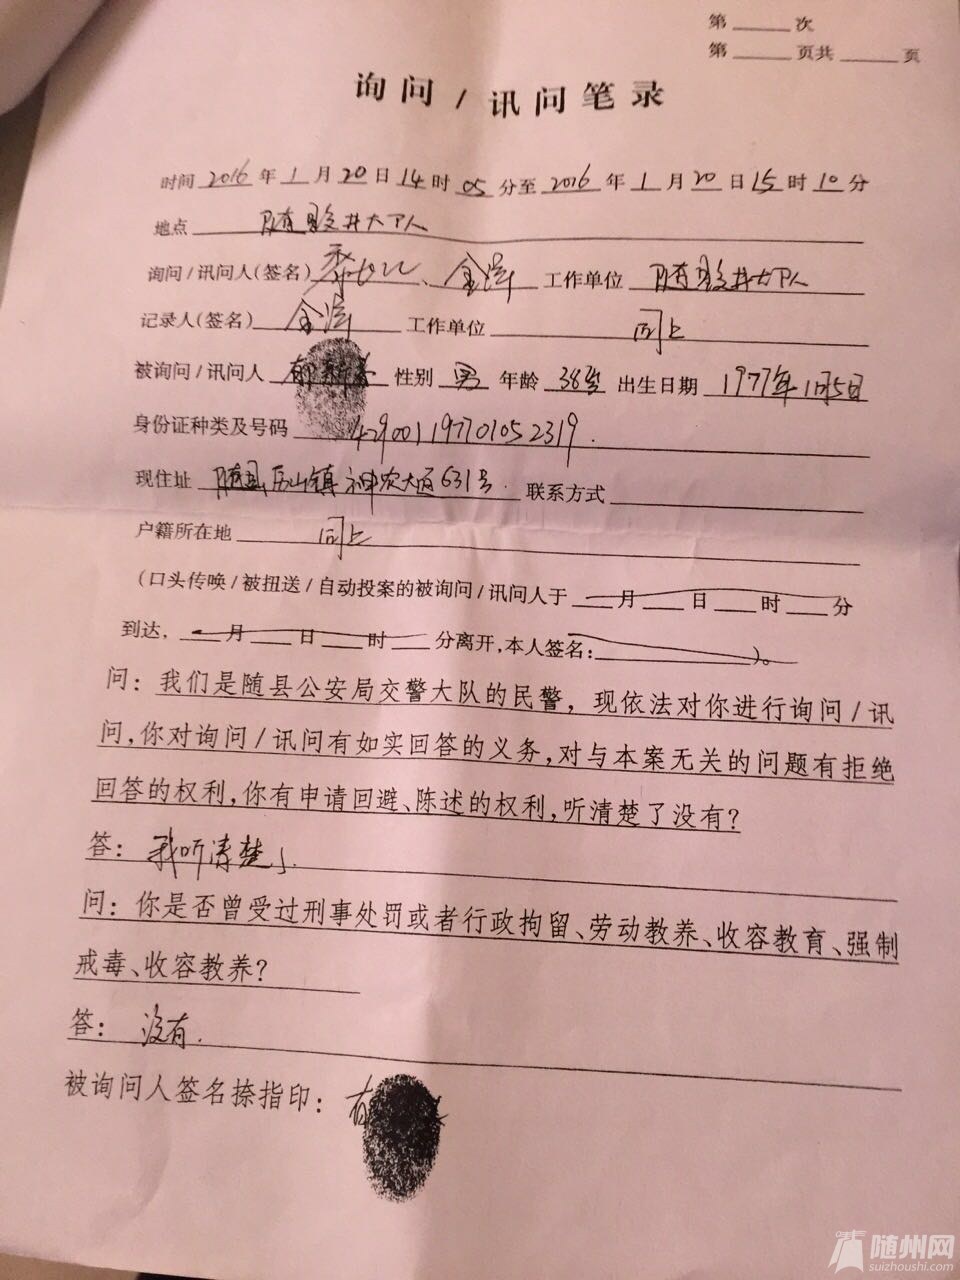 第____次
第____页共____页
询问/讯问笔录
时间 2016 年 1 月 20 日 14 时 05 分至 2016 年 1 月 20 日 15 时 10 分
地点 随县交井大队
询问/讯问人(签名) 、金 工作单位 随县交井大队
记录人(签名) 金 工作单位 同上
被询问/讯问人 性别 男 年龄 38岁 出生日期 1977年1月5日
身份证种类及号码 429001197701052319.
现住址 随县厉山镇神农大道631号. 联系方式
户籍所在地 同上
(口头传唤/被扭送/自动投案的被询问/讯问人于____月____日____时____分
到达,____月____日____时____分离开,本人签名:____)。
问: 我们是随县公安局交警大队的民警, 现依法对你进行询问/讯
问,你对询问/讯问有如实回答的义务,对与本案无关的问题有拒绝
回答的权利,你有申请回避、陈述的权利,听清楚了没有?
答: 我听清楚了.
问: 你是否曾受过刑事处罚或者行政拘留、劳动教养、收容教育、强制
戒毒、收容教养?
答: 没有.
被询问人签名捺指印:
随州网
suizhoushi.com